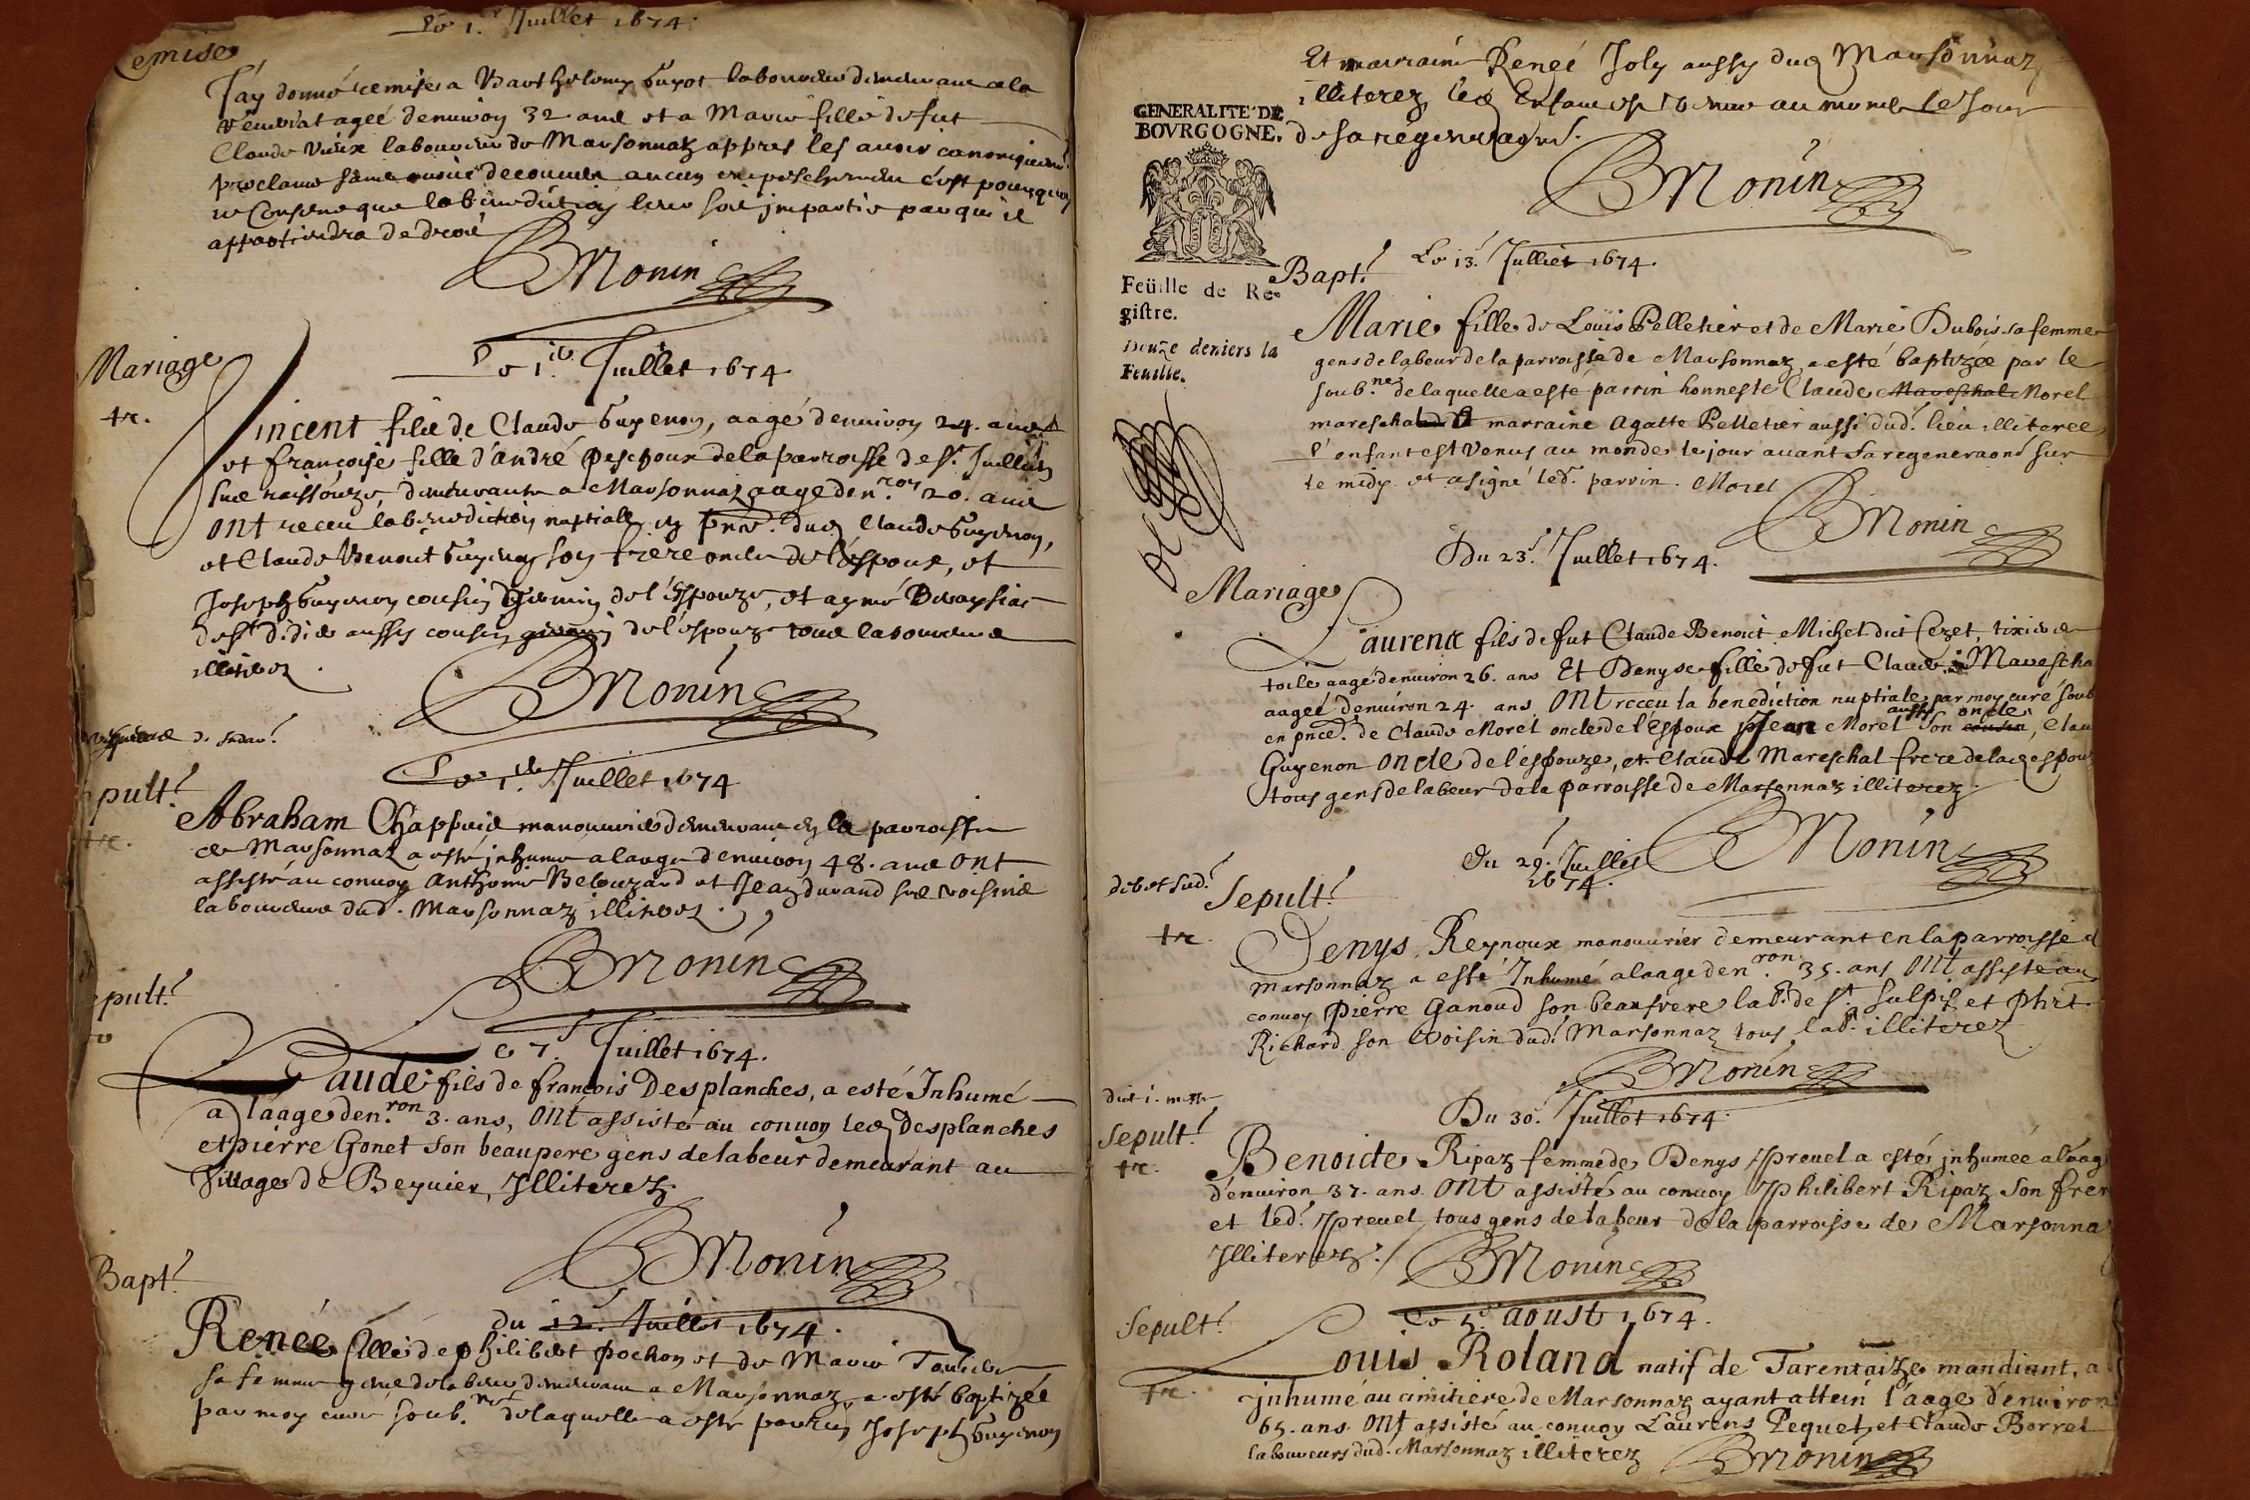 Le 1.er Juillet 1674.
emise
J'ay donné remise a Barthelemy Guyot laboureur demeurant a la
agée denuiron 32 ans et a Marie fille de fut
Claude Vieux laboureur de Marsonnaz appres les auoir canoniquem.t
proclamé sans auoir decouuer aucun empeschement c'est pourquoy
je Consens que la benediction leur soit impartie par qui il
appartiendra de droit
BMonin
Mariage
tr.
Le 1.er Juillet 1674
Vincent fils de Claude Guyenon, aagé denuiron 24. ans
et françoise fille d'André Peschoux de la parroisse de S.t Jullien
sur reissouze, demeurante a Marsonnaz aage den.ron 20. ans
ont receu la benediction nuptialle en pnce. dud Claude Guyenon,
et Claude Benoit Guyenon son frere oncle de l'espoux, et
Joseph Guyenon cousin germain de l'Espouze, et aymé
de S.t Didier aussy cousin germain de l'espouze tous laboureurs
illiterez.
BMonin
pult.
tr.
Le 1.er Juillet 1674
Abraham Chappuis manouurier demeurant en la parroisse
de Marsonnaz a esté inhumé a laage denuiron 48. ans ont
assisté au conuoy Anthoine Belouzard et Jean durand ses voisins
laboureurs dud. Marsonnaz illiterez.
BMonin
epult.
Le 7. Juillet 1674.
Claude fils de françois Desplanches, a esté Inhumé
a l'aage den.ron 3. ans, ont assisté au conuoy led Desplanches
et pierre Gonet son beaupere gens de labeur demeurant au
Village de Beyuier, Illiterez.
BMonin
Bapt.
du 12. Juillet 1674.
Renée fille de philibert pochon et de Marie
sa femme gens de labeur demeurant a Marsonnaz, a esté baptizée
par moy curé soub.né de laquelle a esté parrin Joseph Guyenon
Et marraine Reneé Joly aussy dud Marsonnaz
illiterez led Enfant est venue au monde le jour
de sa regeneraon.
BMonin
GENERALITE' DE
BOVRGOGNE.
Feüille de Re-
gistre.
Douze deniers la
Feuille.
Bapt.
Le 13. Julliet 1674.
Marie fille de Loüis Pelletier et de Marie Dubois sa femme
gens de labeur de la parroisse de Marsonnaz a esté baptizée par le
soub.né de laquelle a esté parrin honneste Claude Mareschal Morel
mareschal Et marraine Agatte Pelletier aussi dud. lieu illiteree
l'enfant est venus au monde le jour auant sa regeneraon sur
le midy. et a signé led. parrin. Morel
BMonin
Mariage
Du 23. Juillet 1674.
Laurent fils de fut Claude Benoict Michel dict Cezet, tixier de
toile aagé denuiron 26. ans Et Denyse fille de fut Claude Marescha
aageé denuiron 24. ans Ont receu la benediction nuptiale par moy curé soub
en pnce. de Claude Morel oncle de l'Espoux Jean Morel aussy son cousin oncle, Clau
Guyenon oncle de l'espouze, et Claude Mareschal frere de lad espou
tous gens de labeur de la parroisse de Marsonnaz illiterez.
BMonin
Du 29. Juillet
1674.
Sepult.
tr.
Denys Reynoux manouurier demeurant en la parroisse d
Marsonnaz a esté Inhumé a laage den.ron 35. ans Ont assisté au
conuoy Pierre Ganoud son beaufrere lab.r de S.t Sulpis et Phi.t
Richard son voisin dud. Marsonnaz tous lab.r illiterez
BMonin
Sepult.
tr.
Du 30. Juillet 1674.
Benoicte Ripaz femme de Denys Preuel a esté inhumée a laag
d'enuiron 37. ans. Ont assisté au conuoy Philibert Ripaz son frer
et led. Preuel tous gens de labeur de la parroisse de Marsonna
Illiterez.
BMonin
Sepult.
tr.
Le 5. aoust 1674.
Louis Roland natif de Tarentaize mandiant, a
inhumé au cimitiere de Marsonnaz ayant attein l'aage d'enuiron
65. ans. Ont assisté au conuoy Laurens Pequet, et Claude Borrel
laboureurs dud. Marsonnaz illiterez
BMonin